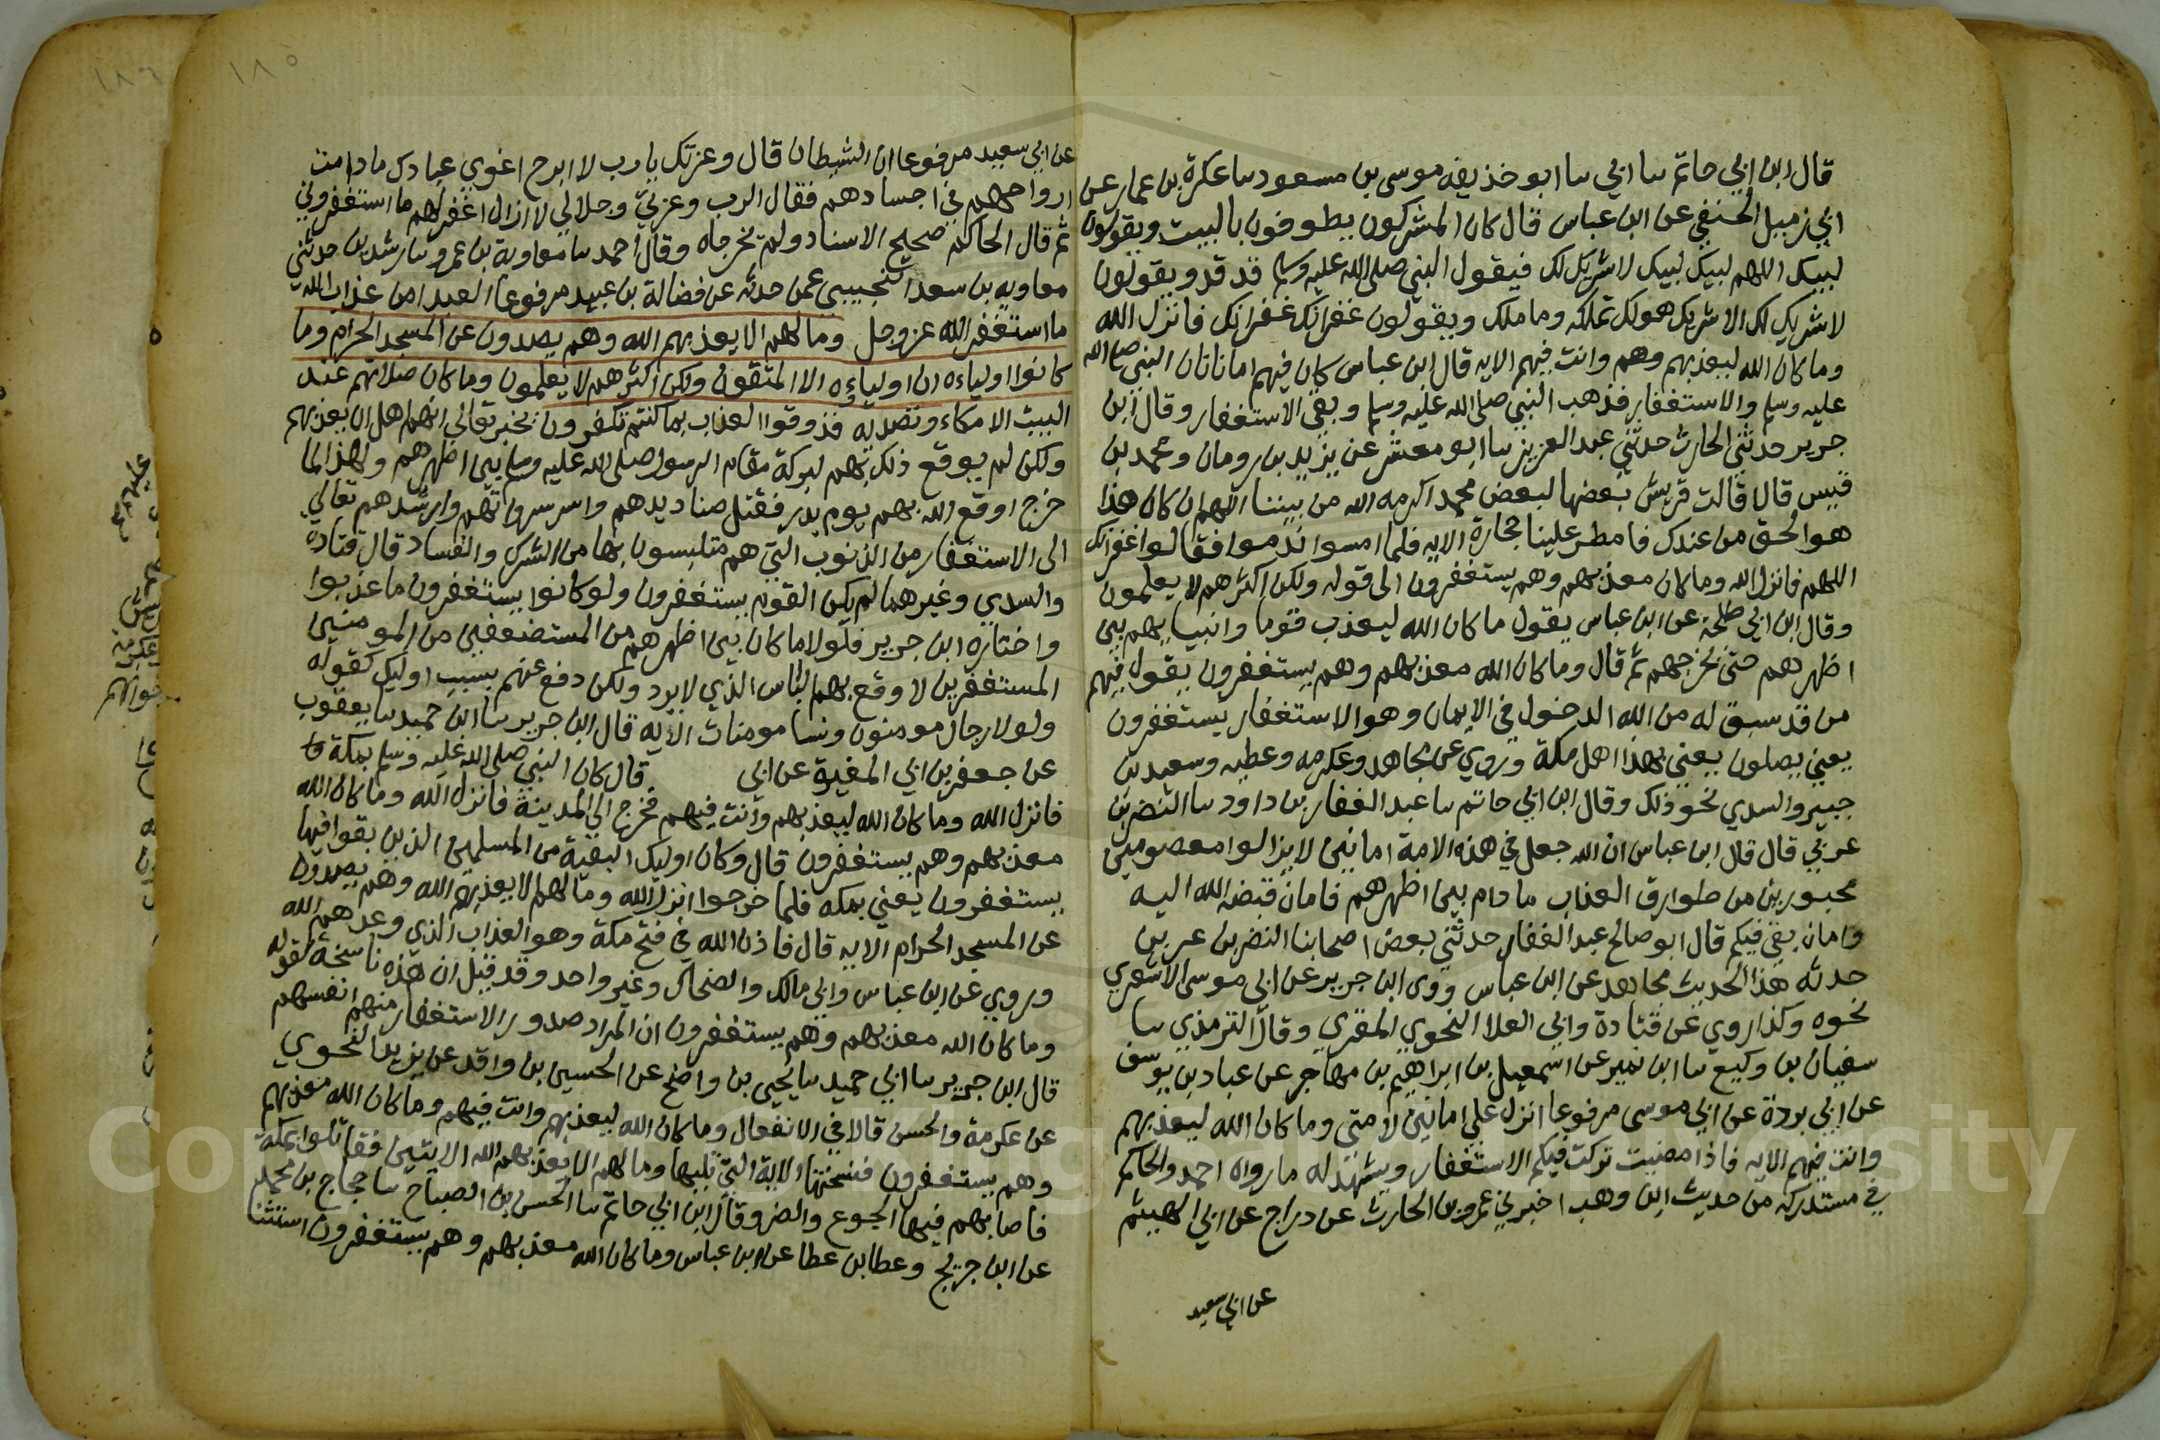 قال ابن ابي حاتم سا ابي سا ابو حذيفه موسى بن مسعود سا عكرمة بن عمار عن
ابي زميل الحنفي عن ابن عباس قال كان المشركون يطوفون بالبيت ويقولون
لبيك اللهم لبيك لبيك لا شريك لك فيقول النبي صلى الله عليه وسلم قد قد ويقولون
لا شريك لك الا شريك هو لك تملكه وما ملك ويقولون غفرانك غفرانك فانزل الله
وما كان الله ليعذبهم وهم وانت فيهم الايه قال ابن عباس كان فيهم امانانان النبي صلى الله
عليه وسلم والاستغفار فذهب النبي صلى الله عليه وسلم وبقي الاستغفار وقال ابن
جرير حدثني الحارث حدثني عبد العزيز سا ابو معشر عن يزيد بن رومان ومحمد بن
قيس قالا قالت قريش بعضها لبعض محمد اكرمه الله من بيننا اللهم ان كان هذا
هو الحق من عندك فامطر علينا حجارة الايه فلما امسوا ندموا فقالوا غفرانك
اللهم فانزل الله وما كان معذبهم وهم يستغفرون الى قوله ولكن اكثرهم لا يعلمون
وقال ابن ابي طلحة عن ابن عباس يقول ما كان الله ليعذب قوما وانبياءهم بين
اظهرهم حتى يخرجهم ثم قال وما كان الله معذبهم وهم يستغفرون يقول فيهم
من قد سبق له من الله الدخول في الايمان وهو الاستغفار يستغفرون
يعني يصلون يعني بهذا اهل مكة وروي عن مجاهد وعكرمه وعطيه وسعيد بن
جبير والسدي نحو ذلك وقال ابن ابي حاتم سا عبد الغفار بن داود سا النضر بن
عربي قال قال ابن عباس ان الله جعل في هذه الامة امانين لا يزالوا معصومين
مجبورين من طوارق العذاب ما دام بين اظهرهم فامان قبضه الله اليه
وامان بقي فيكم قال ابو صالح عبد الغفار حدثني بعض اصحابنا النضر بن عربي
حدثه هذا الحديث مجاهد عن ابن عباس وروى ابن جرير عن ابي موسى الاشعري
نحوه وكذا روي عن قتادة وابي العلا النحوي المقري وقال الترمذي سا
سفيان بن وكيع سا ابن نمير عن اسمعيل بن ابراهيم بن مهاجر عن عباد بن يوسف
عن ابي بردة عن ابي موسى مرفوعا انزل علي امانين لامتي وما كان الله ليعذبهم
وانت فيهم الايه فاذا مضيت تركت فيكم الاستغفار ويشهد له ما رواه احمد والحاكم
في مستدركه من حديث ابن وهب اخبرني عمرو بن الحارث عن دراج عن ابي الهيثم
عن ابي سعيد
١٨٥
عن ابي سعيد مرفوعا ان الشيطان قال وعزتك يا رب لا ابرح اغوي عبادك ما دامت
ارواحهم في اجسادهم فقال الرب وعزتي وجلالي لا ازال اغفر لهم ما استغفروني
ثم قال الحاكم صحيح الاسناد ولم يخرجاه وقال احمد سا معاوية بن عمرو سا رشدين حدثني
معاويه بن سعد التجيبي عمن حدثه عن فضالة بن عبيد مرفوعا العبد امن عذاب الله
ما استغفر الله عز وجل وما لهم الا يعذبهم الله وهم يصدون عن المسجد الحرام وما
كانوا اولياءه ان اولياءه الا المتقون ولكن اكثرهم لا يعلمون وما كان صلاتهم عند
البيت الا مكاء وتصديه فذوقوا العذاب بما كنتم تكفرون يخبر تعالى انهم اهل ان يعذبهم
ولكن لم يوقع ذلك بهم لبركة مقام الرسول صلى الله عليه وسلم بين اظهرهم ولهذا لما
خرج اوقع الله بهم يوم بدر فقتل صناديدهم واسر سرواتهم وارشدهم تعالى
الى الاستغفار من الذنوب التي هم متلبسون بها من الشرك والفساد قال قتادة
والسدي وغيرهما لم يكن القوم يستغفرون ولو كانوا يستغفرون ما عذبوا
واختاره ابن جرير فلولا ما كان بين اظهرهم من المستضعفين من المومنين
المستغفرين لا وقع بهم الباس الذي لا يرد ولكن دفع عنهم بسبب اوليك كقوله
ولولا رجال مومنون ونسا مومنات الايه قال ابن جرير سا ابن حميد سا يعقوب
عن جعفر بن ابي المغيرة عن ابي قال كان النبي صلى الله عليه وسلم بمكة
فانزل الله وما كان الله ليعذبهم وانت فيهم فخرج الى المدينة فانزل الله وما كان الله
معذبهم وهم يستغفرون قال وكان اوليك البقية من المسلمين الذين بقوا فيها
يستغفرون يعني بمكه فلما خرجوا انزل الله وما لهم الا يعذبهم الله وهم يصدون
عن المسجد الحرام الايه قال فاذن الله في فتح مكة وهو العذاب الذي وعدهم الله
وروي عن ابن عباس وابي مالك والضحاك وغير واحد وقد قيل ان هذه ناسخة لقوله
وما كان الله معذبهم وهم يستغفرون ان المراد صدور الاستغفار منهم انفسهم
قال ابن جرير سا ابي حميد سا يحيى بن واضح عن الحسين بن واقد عن يزيد النحوي
عن عكرمة والحسن قالا في الانفال وما كان الله ليعذبهم وانت فيهم وما كان الله معذبهم
وهم يستغفرون فنسختها الاية التي تليها وما لهم الا يعذبهم الله الايتين فقاتلوا بمكة
فاصابهم فيها الجوع والضر وقال ابن ابي حاتم سا الحسن بن الصباح سا حجاج بن محمد
عن ابن جريج وعطا بن عطا عن ابن عباس وما كان الله معذبهم وهم يستغفرون استثنا
١٨٦